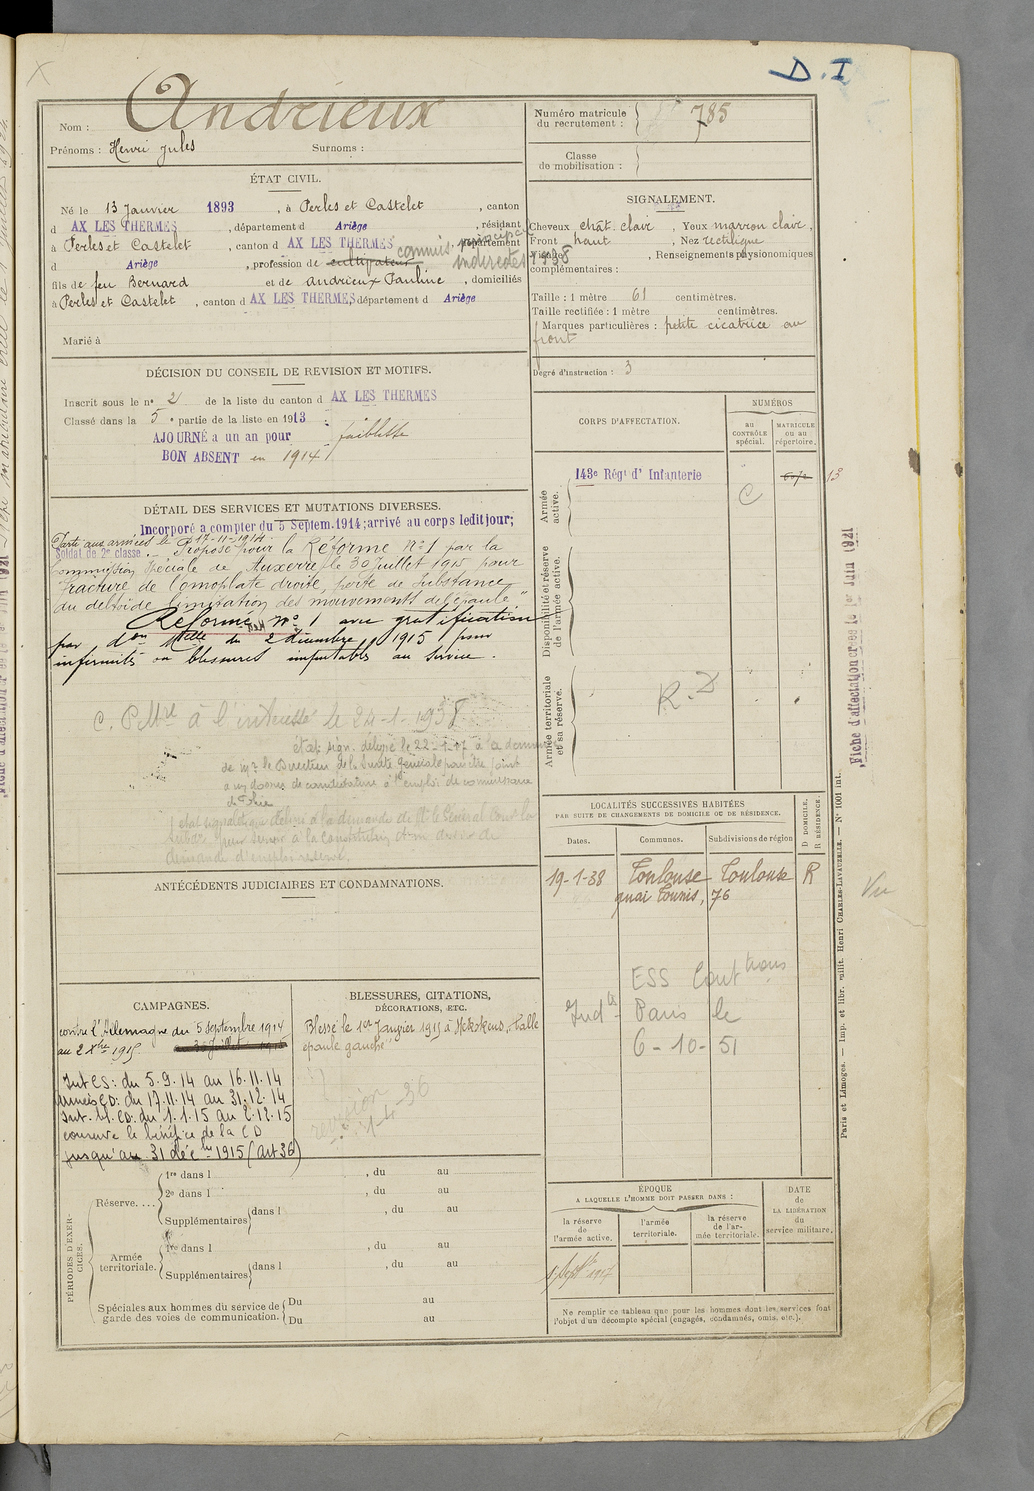 D. I
Nom : Andrieux
Prénoms : Henri Jules Surnoms :
ÉTAT CIVIL.
Né le 13 Janvier 1893, à Perles et Castelet, canton
d AX LES THERMES, département d Ariège, résidant
à Perles et Castelet, canton d AX LES THERMES, département
d Ariège, profession de cultivateur commis principal indirectes 1938
fils de feu Bernard et de Andrieux Pauline, domiciliés
à Perles et Castelet, canton d AX LES THERMES département d Ariège
Marié à
DÉCISION DU CONSEIL DE REVISION ET MOTIFS.
Inscrit sous le n° 2 de la liste du canton d AX LES THERMES
Classé dans la 5e partie de la liste en 1913
AJOURNÉ a un an pour faiblesse
BON ABSENT en 1914
DÉTAIL DES SERVICES ET MUTATIONS DIVERSES.
Incorporé a compter du 5 Septem. 1914; arrivé au corps ledit jour;
Parti aux armées le 17-11-1914
Soldat de 2e classe. - Proposé pour la Réforme N°1 par la
Commission Spéciale de Auxerre, le 30 juillet 1915, pour
"Fracture de l'omoplate droite, perte de substance
du deltoïde limitation des mouvements de l'épaule"
Réformé n° 1 avec gratification
par don Melle du 2 décembre 1915 pour
infirmités ou blessures imputables au service.
C. P. Mre à l'intéressé le 24-1-1938
état sign. délivré le 22-1-17 à la demande
de Mr le Directeur de la Sureté générale pour être joint
à un dossier de candidature à l'emploi de commissaire
de Police
1 état signalétique délivré à la demande de M. le Général Cont la
Subdon pour servir à la constitution d'un dossier de
demande d'emploi réservé.
ANTÉCÉDENTS JUDICIAIRES ET CONDAMNATIONS.
CAMPAGNES.
contre l'Allemagne du 5 septembre 1914
au 2 Xbre 1915.
Int CS: du 5.9.14 au 16.11.14
Armées CD: du 17.11.14 au 31.12.14
Int. bl. CD. du 1.1.15 au 2.12.15
conserve le bénéfice de la CD
jusqu'au 31 déc bre 1915 (art 36)
BLESSURES, CITATIONS,
DÉCORATIONS, ETC.
Blessé le 1er Janvier 1915 à , balle
épaule gauche"
revision
1-4-36
PÉRIODES D'EXERCICES.
Réserve....
1re dans l , du au
2e dans l , du au
Supplémentaires dans l , du au
Armée territoriale.
1re dans l , du au
Supplémentaires dans l , du au
Spéciales aux hommes du service de
garde des voies de communication.
Du au
Du au
Numéro matricule
du recrutement : 785
Classe
de mobilisation :
SIGNALEMENT.
Cheveux chât. clair, Yeux marron clair,
Front haut, Nez rectiligne
Visage , Renseignements physionomiques
complémentaires :
Taille : 1 mètre 61 centimètres.
Taille rectifiée : 1 mètre centimètres.
Marques particulières : petite cicatrice au
front
Degré d'instruction : 3
CORPS D'AFFECTATION.
NUMÉROS
au
CONTRÔLE
spécial.
MATRICULE
ou au
répertoire.
Armée
active.
143e Régt d' Infanterie
C
13
Disponibilité et réserve
de l'armée active.
Armée territoriale
et sa réserve.
R. D
LOCALITÉS SUCCESSIVES HABITÉES
PAR SUITE DE CHANGEMENTS DE DOMICILE OU DE RÉSIDENCE.
Dates.
Communes.
Subdivisions de région
D DOMICILE.
R RÉSIDENCE.
19-1-38 Toulouse Toulouse R
quai Tounis, 76
Vu
ESS Conttions
Indtes Paris le
6-10-51
ÉPOQUE
A LAQUELLE L'HOMME DOIT PASSER DANS :
la réserve
de l'armée active.
l'armée
territoriale.
la réserve
de l'ar-
mée territoriale.
DATE
de
LA LIBÉRATION
du
service militaire.
Ne remplir ce tableau que pour les hommes dont les services font
l'objet d'un décompte spécial (engagés, condamnés, omis, etc.).
Paris et Limoges. — Imp. et libr. milit. Henri CHARLES-LAVAUZELLE. — N° 1001 int.
Fiche d'affectation créée le 1er Juin 1921